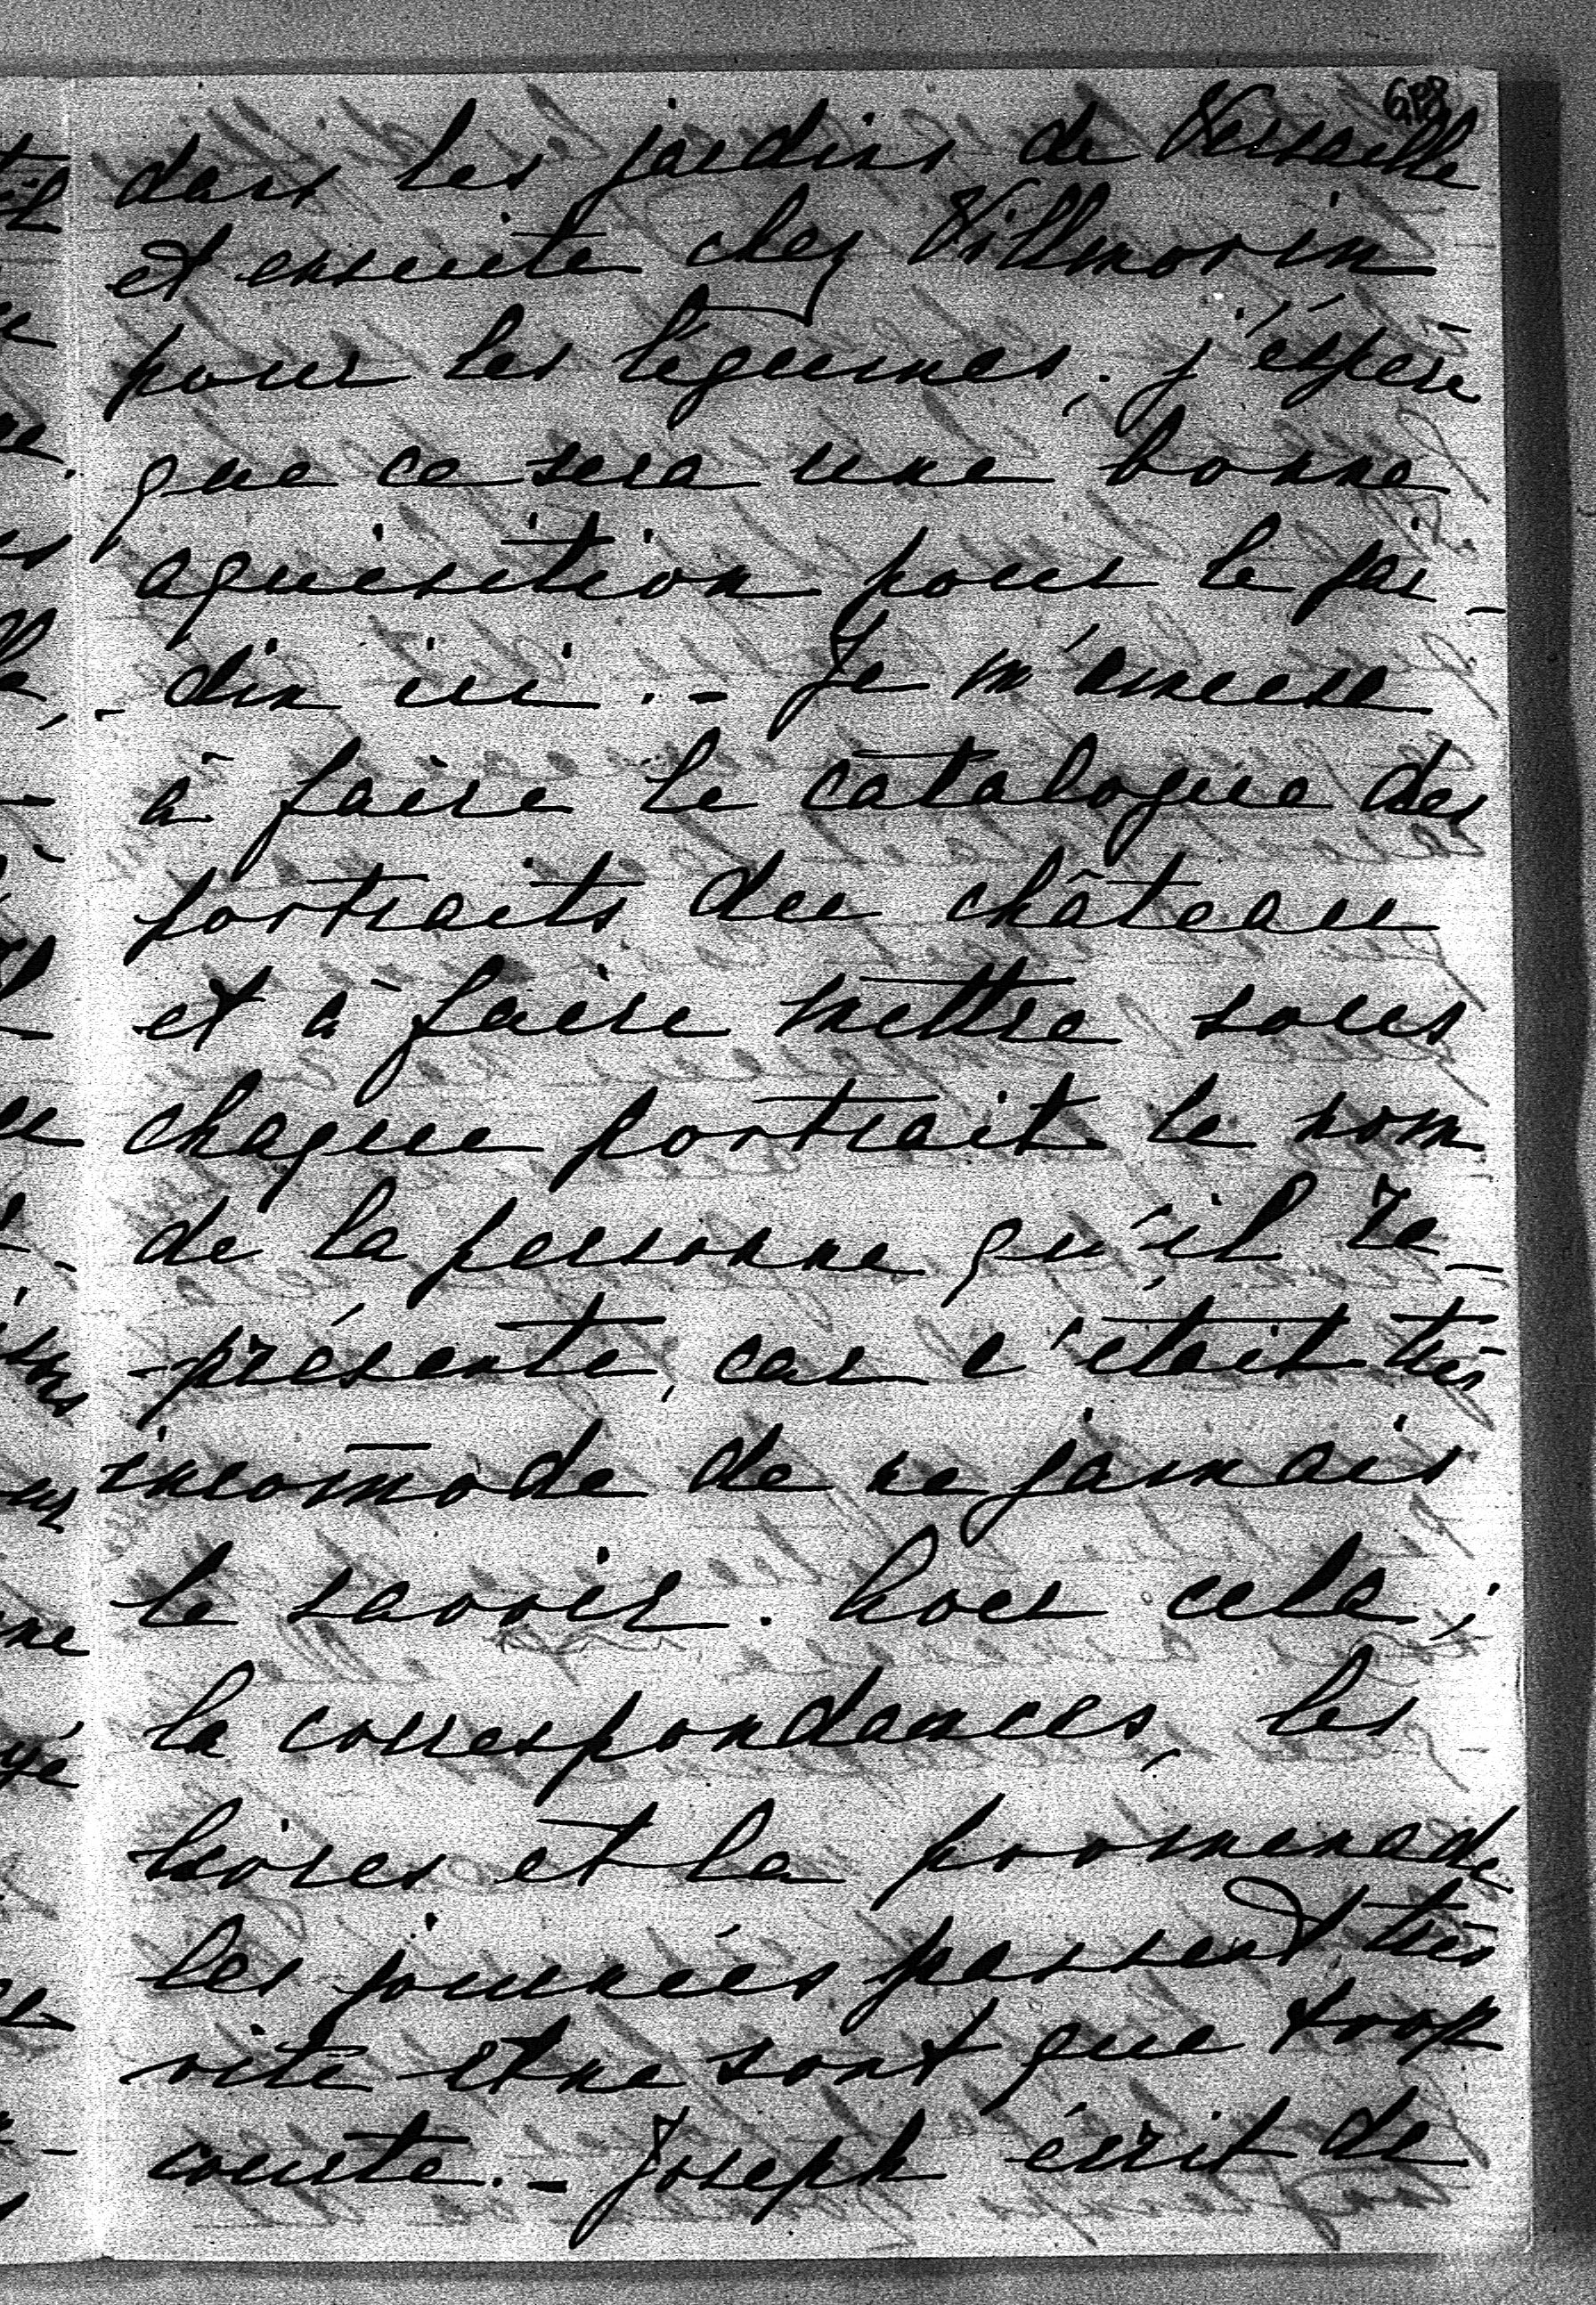 688
dans les jardins de Versaille
et ensuite chez Villmorin
pour les légumes, j'éspère
que ce sera une bonne
aquisition pour le jar-
-din ici. - Je m'amuse
à faire le catalogue des
portraits du château
et à faire mettre sous
chaque portrait le nom
de la personne qu'il re-
-présente, car c'était très
incom̄ode de ne jamais
le savoir. hors cela,
la correspondances, les
livres et la promenade
les journées passent très
vite et ne sont que trop
courte. - Joseph écrit de